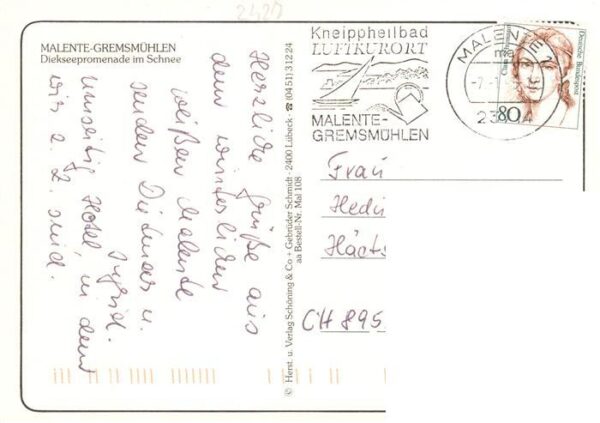 2425
MALENTE-GREMSMÜHLEN
Diekseepromenade im Schnee
Herzliche Grüße aus
dem winterlichen
weißen Malente
senden Dietmar u.
Ingrid.
umseitig Hotel, in dem
wir z. Z. sind.
© Herst. u. Verlag Schöning & Co + Gebrüder Schmidt · 2400 Lübeck · ☎ (04 51) 3 12 24
aa Bestell-Nr. Mal 108
Kneippheilbad
LUFTKURORT
MALENTE-
GREMSMÜHLEN
MALENTE
ma
23
Deutsche Bundespost
80
Frau
Hedi
Häch
CH 895